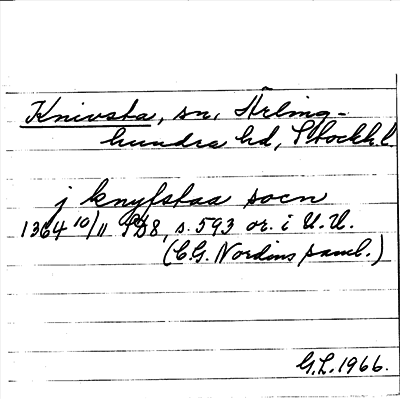 Knivsta, sn, Ärling-
hundra hd, Stockh. l.
j knyfstaa socn
1364 10/11 SD8, s. 593 or. i U.U.
(C.G. Nordins saml.)
G.L. 1966.